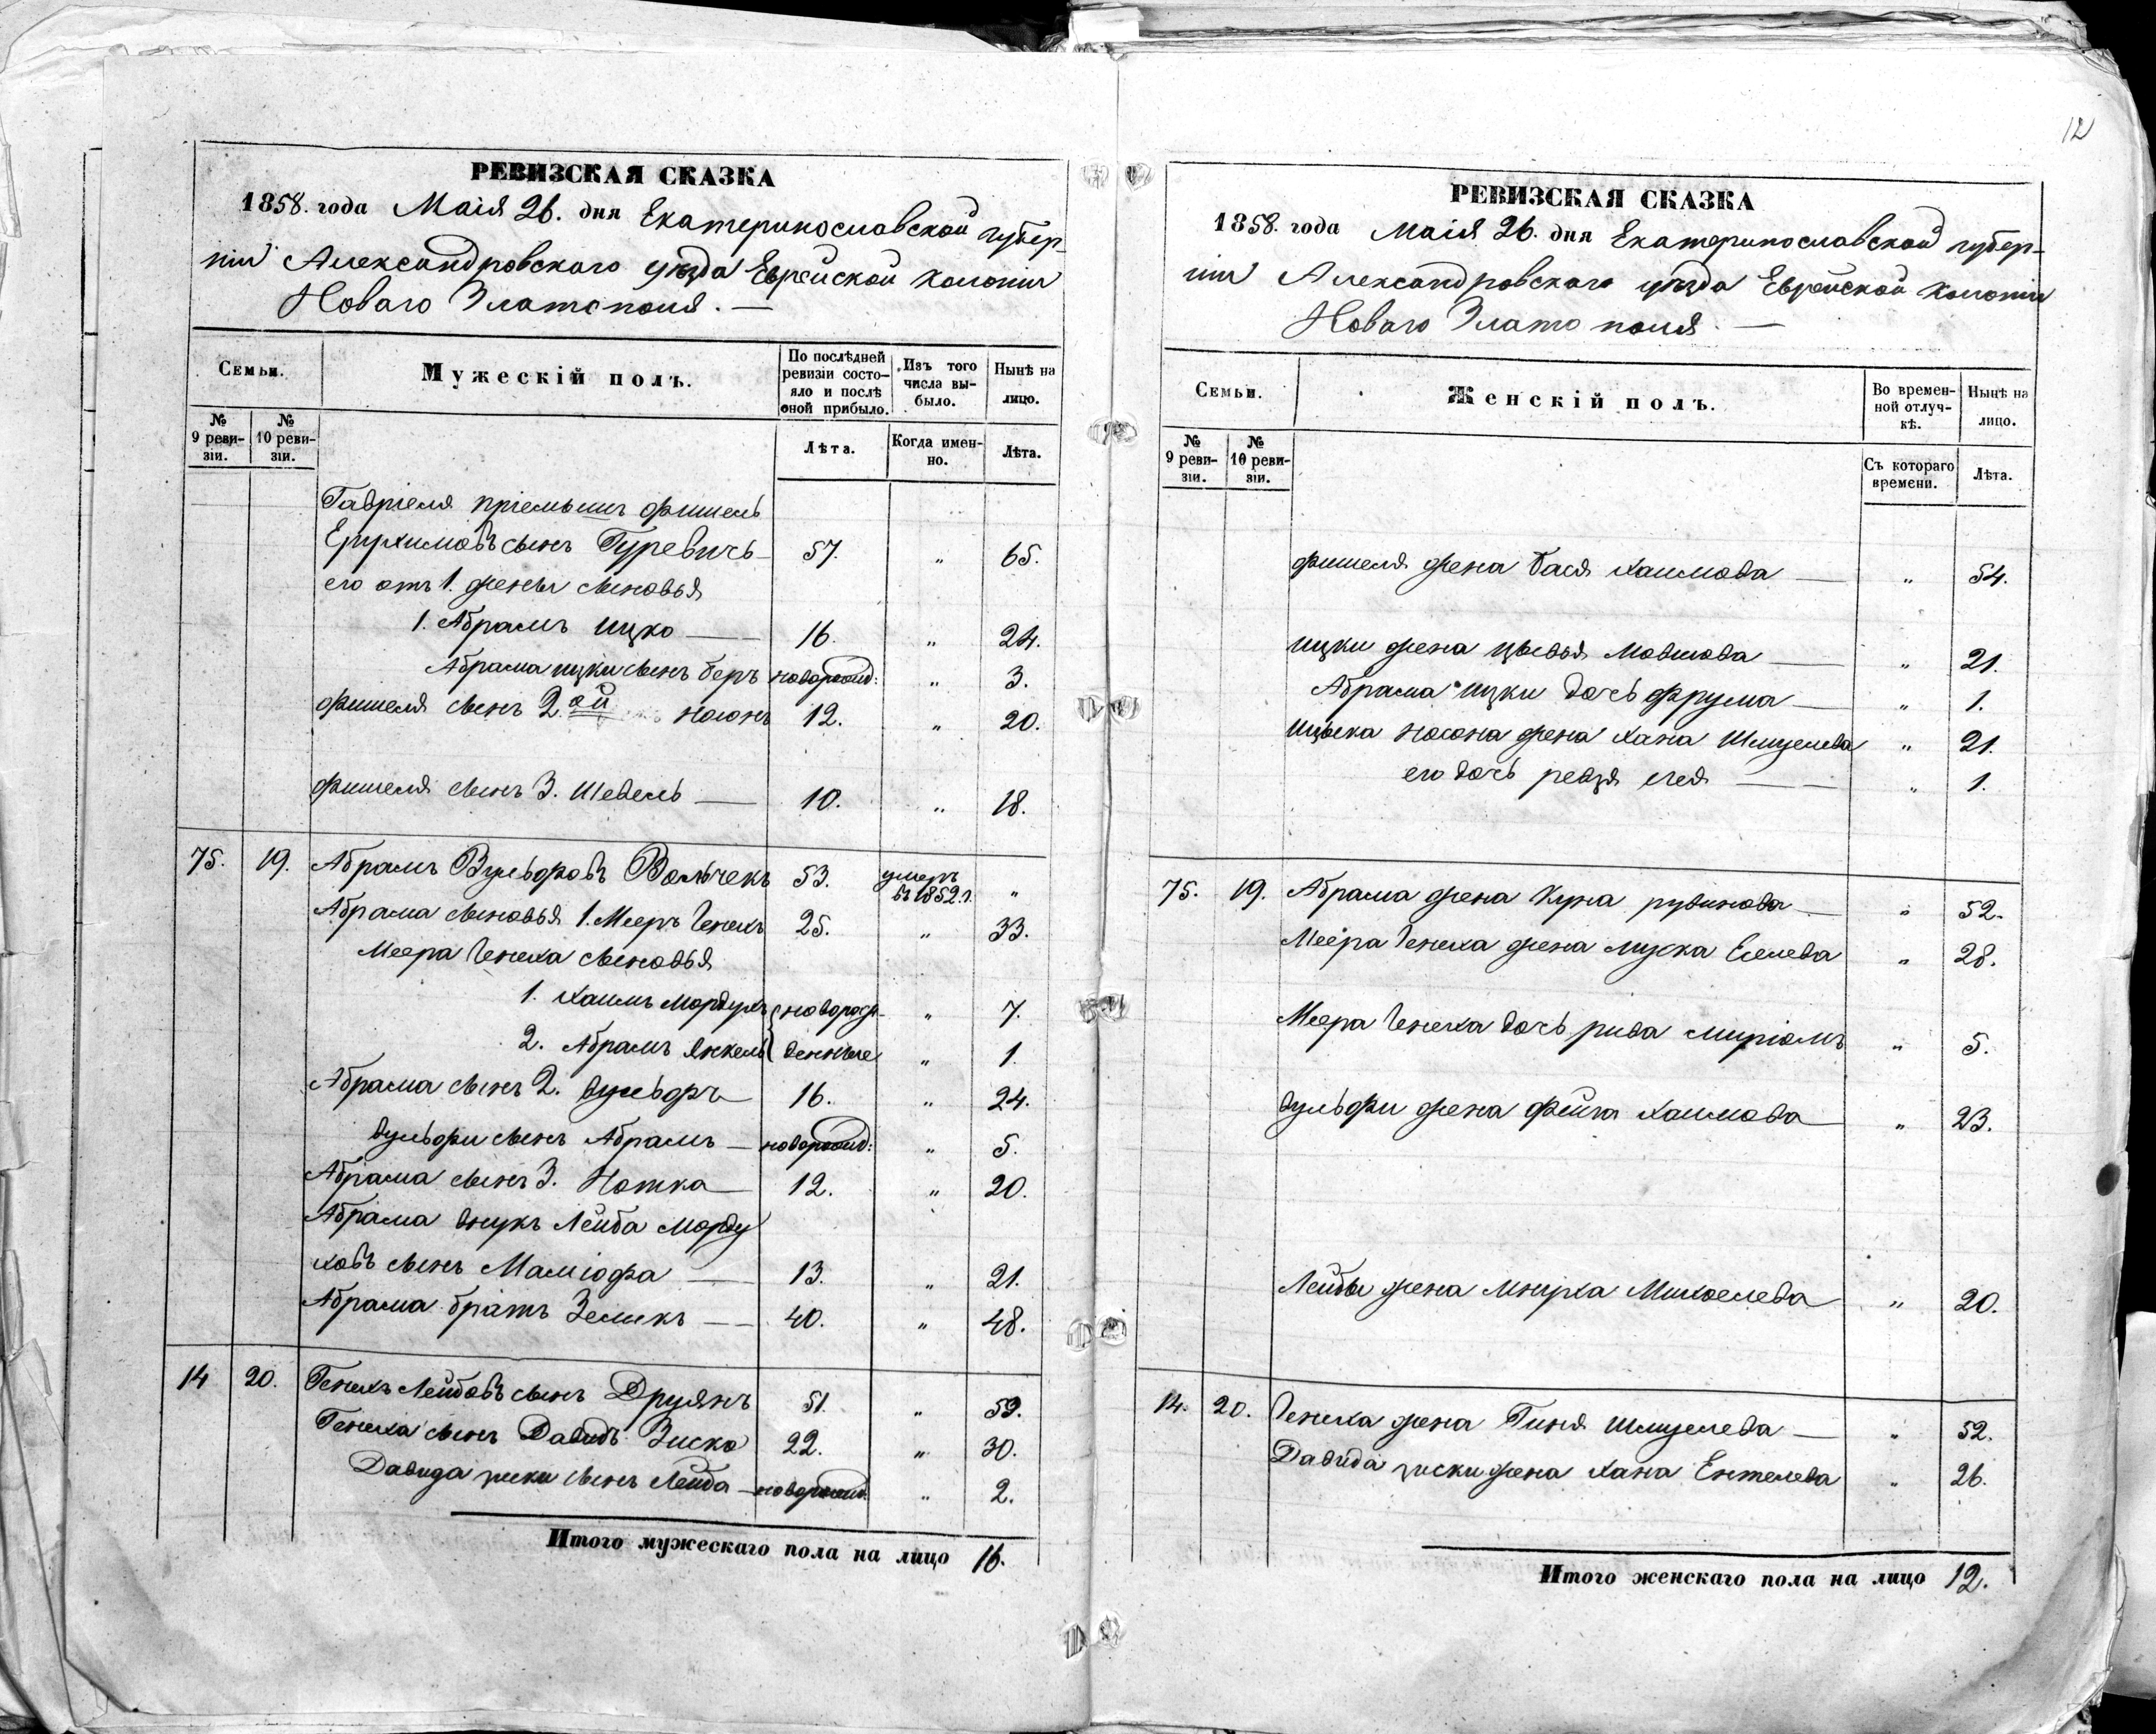 12
РЕВИЗСКАЯ СКАЗКА
1858. года Маія 26. дня Екатеринославской губер-
ніи Александровского уѣзда Еврейской Колоніи
Новаго Златополя. —
Семьи. Мужескій полъ. По послѣдней ревизіи состояло и послѣ оной прибыло. Изъ того числа выбыло. Нынѣ на лицо.
№ 9 ревизіи. № 10 ревизіи. Лѣта. Когда именно. Лѣта.
Гавріеля пріемышъ Фишель
сынъ Гуревичь 57. " 65.
его отъ 1. жены сыновья
1. Абрамъ Ицко — 16. " 24.
Абрама Ицки сынъ Беръ новорожд: " 3.
Фишеля сынъ 2ой Носонъ 12. " 20.
Фишеля сынъ 3. Шевель — 10. " 18.
75. 19. Абрамъ Вульфовъ Вольчекъ 53. умеръ въ 1852 г. "
Абрама сыновья 1. Мееръ Генехъ 25. " 33.
Меера Генеха сыновья
1. Хаимъ Мордухъ новорож- " 7.
2. Абрамъ Янкель денные " 1.
Абрама сынъ 2. Вульфъ 16. " 24.
Вульфи сынъ Абрамъ — новорожд: " 5.
Абрама сынъ 3. Нотка 12. " 20.
Абрама внукъ Лейба Морду
ховъ сынъ Маміофа — 13. " 21.
Абрама братъ Зеликъ — 40. " 48.
14 20. Генехъ Лейбовъ сынъ Друянъ 51. " 59.
Генеха сынъ Давидъ Зиско 22. " 30.
Давида Зиски сынъ Лейба — новорожд. " 2.
Итого мужескаго пола на лицо 16.
РЕВИЗСКАЯ СКАЗКА
1858. года Маія 26. дня Екатеринославской губер-
ніи Александровскаго уѣзда Еврейской Колоніи
Новаго Злато поля. —
Семьи. Женскій полъ. Во временной отлучкѣ. Нынѣ на лицо.
№ 9 ревизіи. № 10 ревизіи. Съ котораго времени. Лѣта.
Фишеля жена Бася Хаимова — " 54.
Ицки жена Цывья Мовшова — " 21.
Абрама Ицки дочь Фрума — " 1.
Носона жена Хана Шмуелева " 21.
его дочь Лея — " 1.
75. 19. Абрама жена Куна Рувинова — " 52.
Меера Генеха жена Муска Еселева " 28.
Меера Генеха дочь Рива Миріамъ " 5.
Вульфи жена Фейга Хаимова " 23.
Лейбы жена Мнуха Михелева " 20.
14. 20. Генеха жена Гиня Шмуелева — " 52.
Давида Зиски жена Хана Ентелева " 26.
Итого женскаго пола на лицо 12.